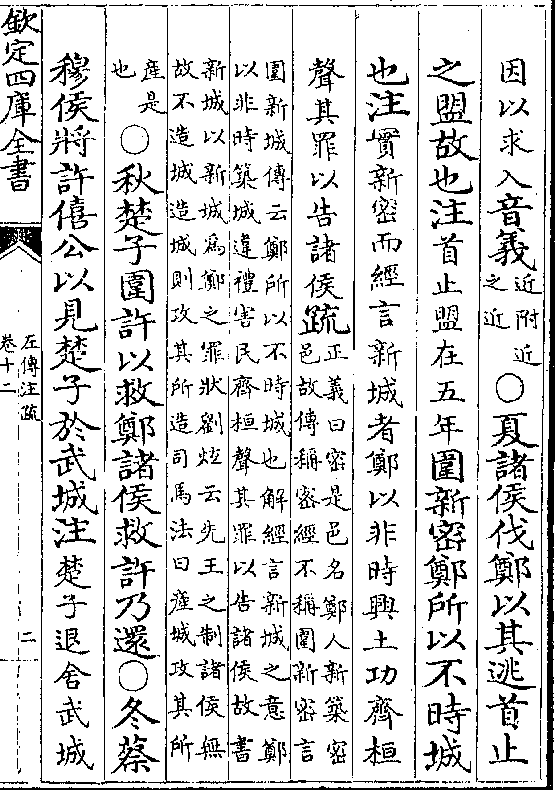 因以求入音義近附近
之近○夏諸侯伐鄭以其逃首止
之盟故也注首止盟在五年圍新密鄭所以不時城
也注實新密而經言新城者鄭以非時興土功齊桓
聲其罪以告諸侯疏正義曰密是邑名鄭人新築密
邑故傳稱密經不稱圍新密言
圍新城傳云鄭所以不時城也解經言新城之意鄭
以非時築城違禮害民齊桓聲其罪以告諸侯故書
新城以新城為鄭之罪狀劉炫云先王之制諸侯無
故不造城造城則攻其所造司馬法曰産城攻其所
産是
也○秋楚子圍許以救鄭諸侯救許乃還○冬蔡
穆侯將許僖公以見楚子於武城注楚子退舍武城
欽定四庫全書
左傳注疏
卷十二
二